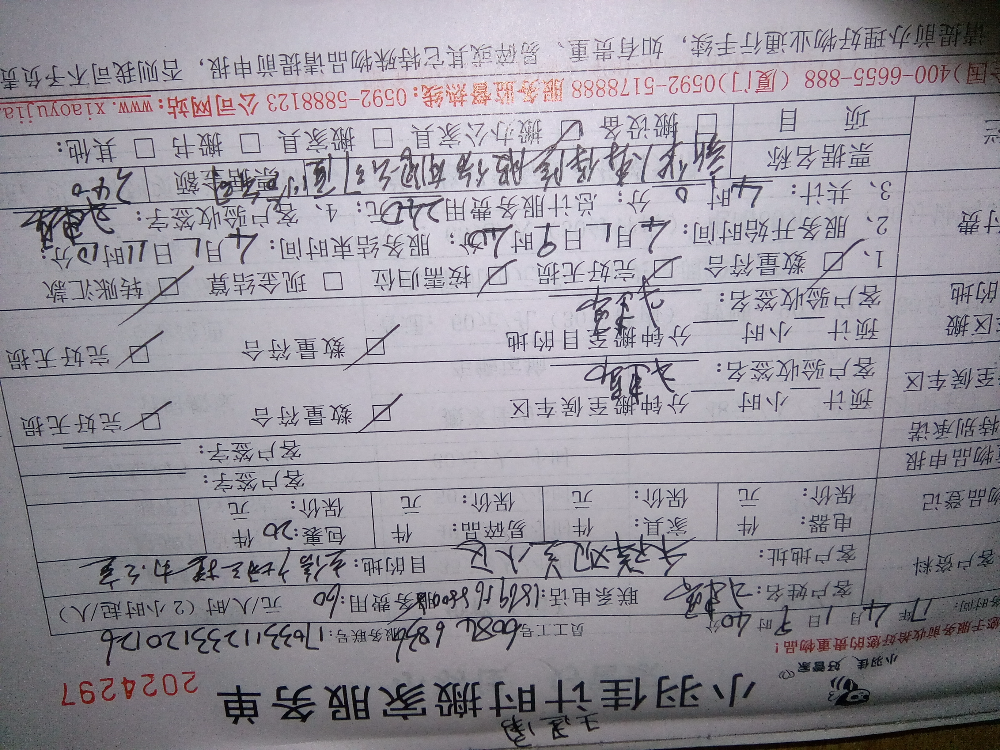 小羽佳计时搬家服务单
2024297
小羽佳 好管家
您于服务前收拾好您的贵重物品!
务时间: 17年 4月 1日 9时 40分
员工工号: 服务联号: 1703311233120126
客户资料
客户姓名: 联系电话: 服务费用: 60 元/人/时 (2小时起)/人)
客户地址: 目的地:
物品登记
电器: 件 家具: 件 易碎品: 件 包裹: 20 件
保价: 元 保价: 元 保价: 元 保价: 元
物品申报 客户签字:
特别承诺 客户签字:
至候车区 预计 小时 分钟搬至候车区 ☑ 数量符合 ☑ 完好无损
客户验收签名:
车区搬 预计 小时 分钟搬至目的地 ☑ 数量符合 ☑ 完好无损
的地 客户验收签名:
付费
1、☑ 数量符合 ☑ 完好无损 ☑ 按需归位 □ 现金结算 ☑ 转账汇款
2、服务开始时间: 4月1日9时40分; 服务结束时间: 4月1日11时10分;
3、共计: 4时0分; 总计服务费用240元; 4、客户验收签字:
票据名称 新华人寿保险股份有限公司厦门分公司 票据金额 240
项 目 □ 搬设备 ☑ 搬办公家具 □ 搬家具 □ 搬书 □ 其他:
国)400-6655-888 (厦门)0592-5178888 服务监督热线:0592-5888123 公司网站:www.xiaoyujia.
请提前办理好物业通行手续, 如有贵重、易碎或其它特殊物品请提前申报, 否则我司不予负责